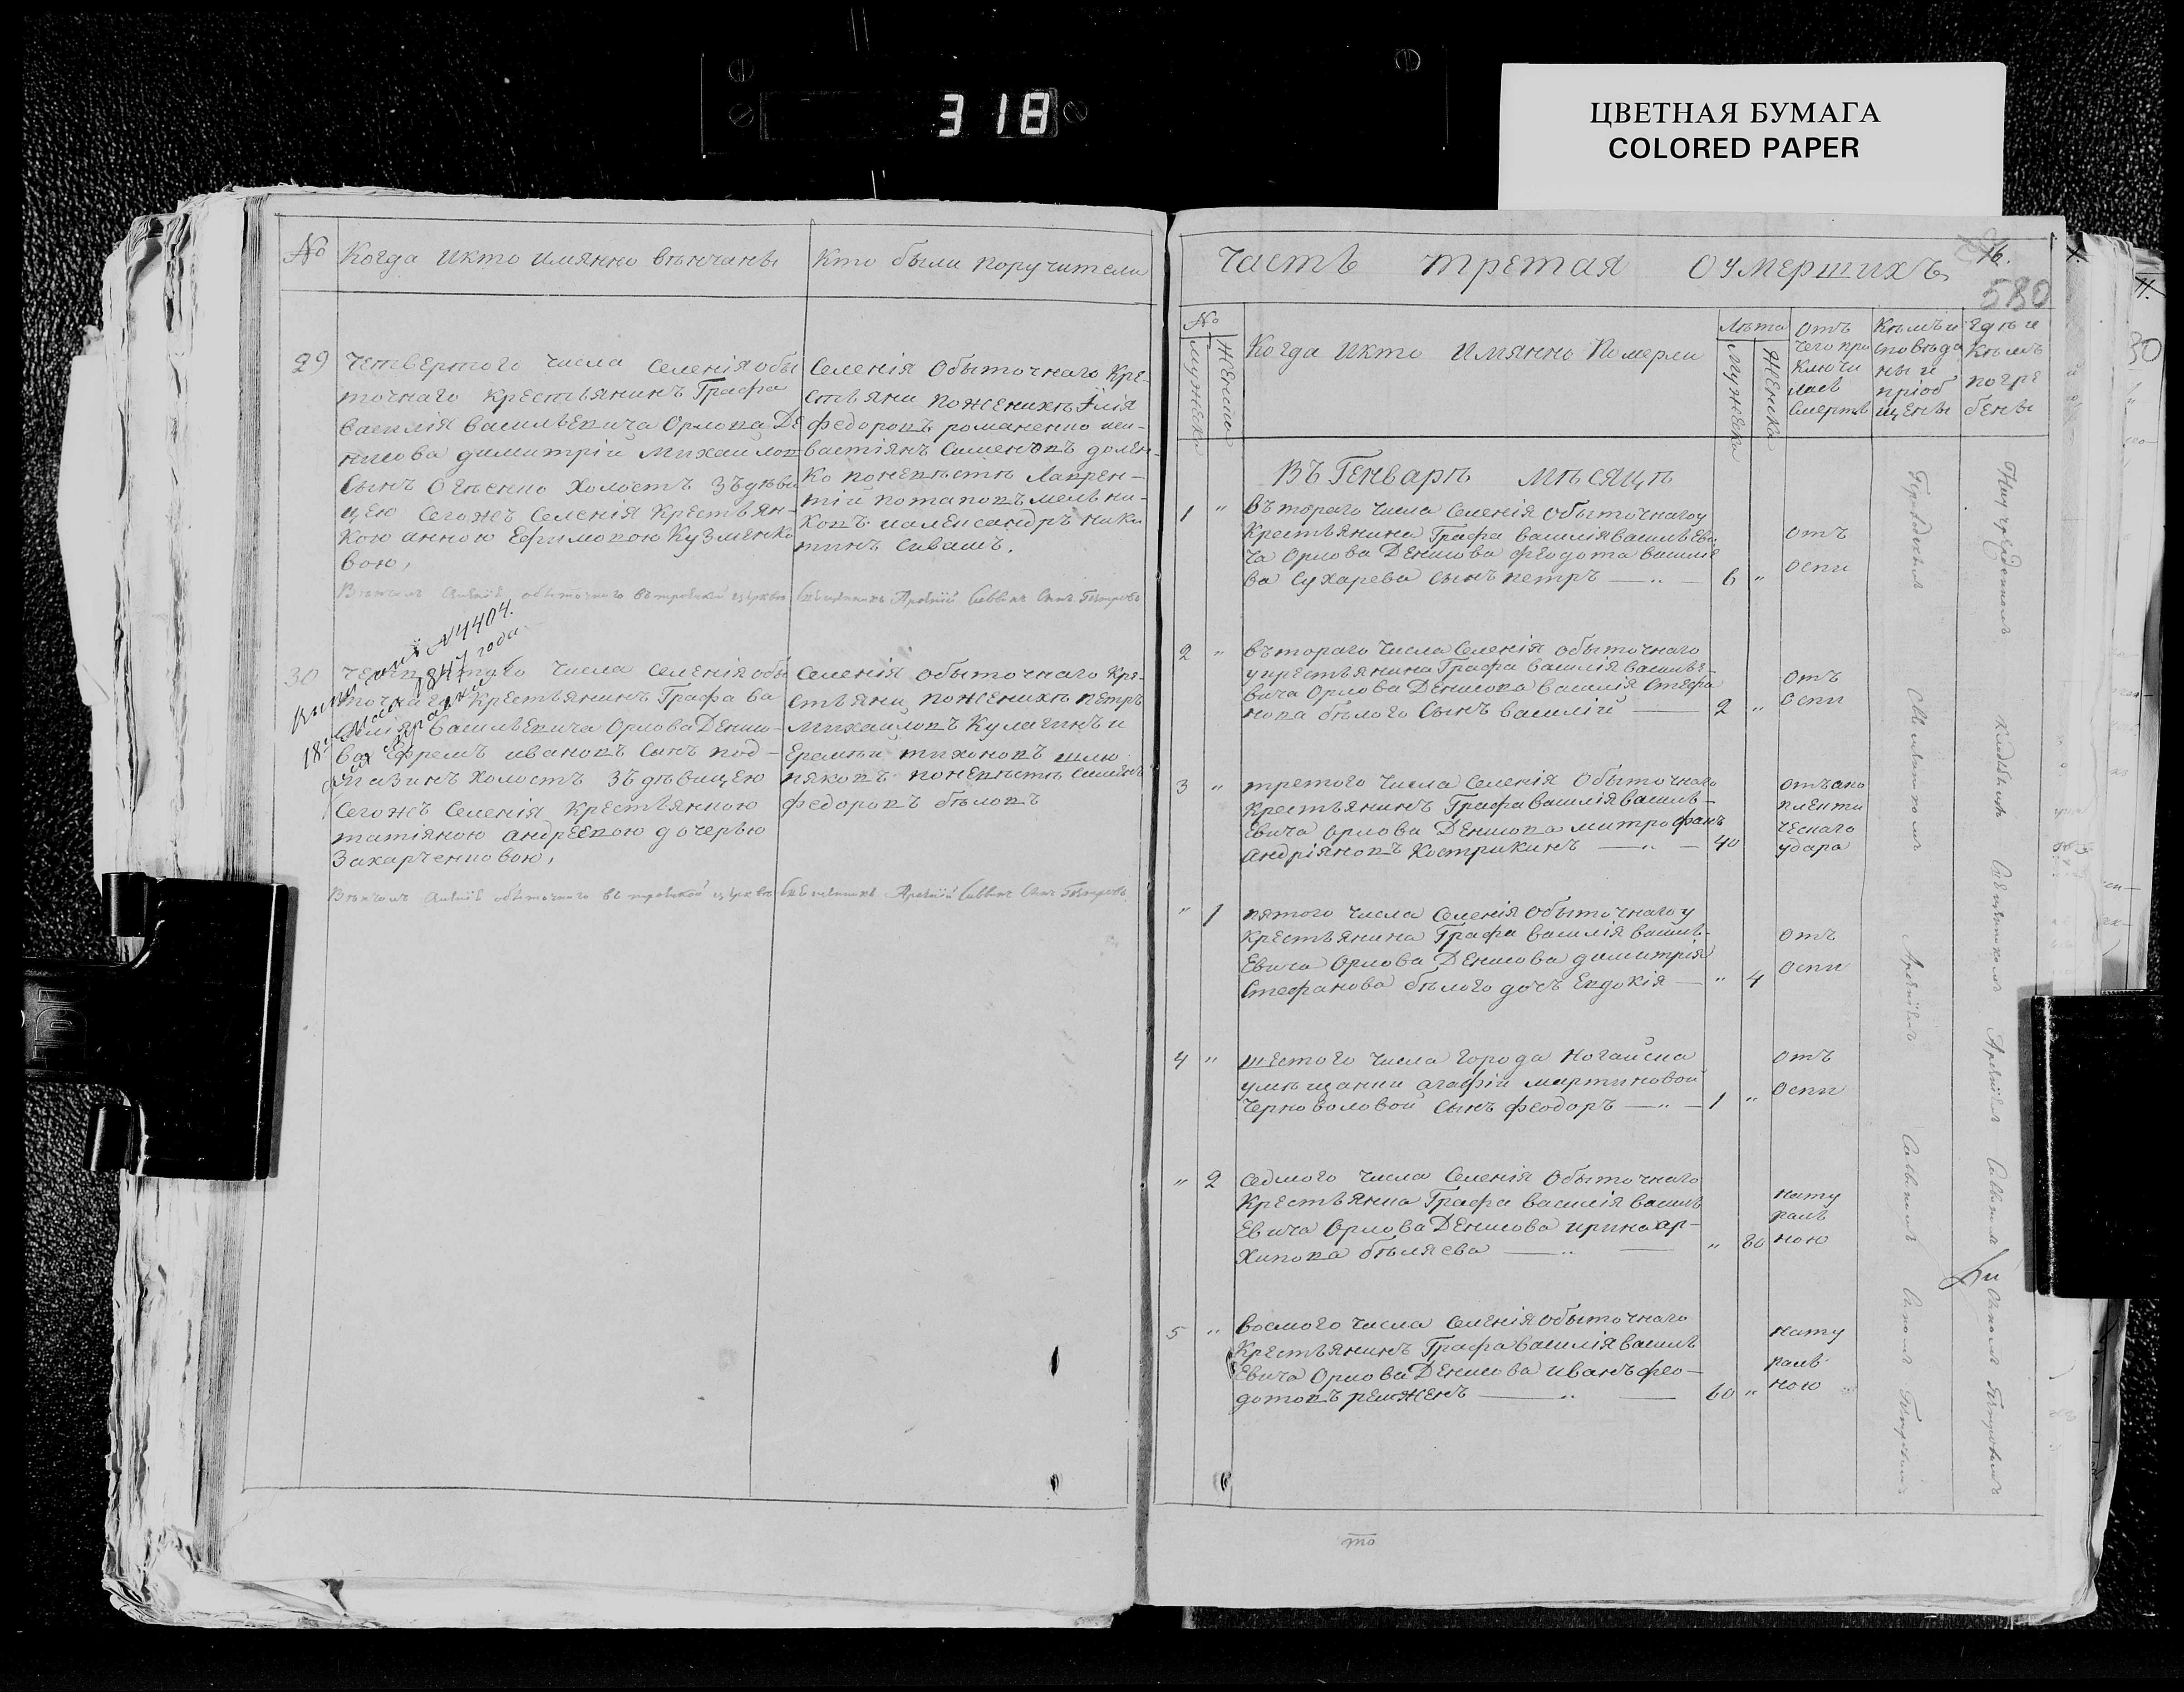 318
ЦВЕТНАЯ БУМАГА
COLORED PAPER
№ Когда икто имянно вѣнчаны
Кто были поручители
29 Четвертого числа селенія обы
точнаго крестьянинъ Графа
василія васильевича Орлова Де
нисова димитрій михаилов
сынъ холостъ зъ дѣви
цею сегожъ селенія крестьян-
кою анною Ефимовою Кузменко
вою,
селенія Обыточнаго кре-
стьяни поженихѣ Илія
федоровъ романенко исе-
вастіянъ сименовъ
ко поневѣстѣ Лаврен-
тій потаповъ мельни-
ковъ иалександръ ники
тинъ сивашъ.
селенія обыточнаго
Арсеній Саввинъ Сынъ Петровъ
№ 4404.
1847 года
30 числа селенія обы
точнаго крестьянинъ Графа ва
силія васильевича Орлова Денисо-
ва Ефремъ ивановъ сынъ под-
холостъ зъ дѣвицею
сегожъ селенія крестьянкою
татіяною андреевою дочерью
Захарченковою,
селенія обыточнаго кре-
стьяни поженихѣ петръ
михаиловъ Кулагинъ и
Еремѣй тихоновъ
поневѣстѣ
федоровъ бѣловъ
селеніе обыточнаго
Арсеній Саввинъ Сынъ Петровъ
Часть третая оумершихъ
16.
580
№
Мужеска
Женска
Когда икто имянно померли
Лѣта
Мужеска
Женска
отъ
чего при
ключи
лась
смерть
Кѣмъ и
сповѣда
ны и
пріоб
щены
Гдѣ и
кѣмъ
погре
бены
Въ Генварѣ мѣсяцѣ
1 " вътораго числа селенія обыточнаго у
крестьянина Графа василія васильеви
ча Орлова Денисова феодота василіе
ва Сухарева сынъ петръ — " — 6 "
отъ
оспи
2 " вътораго числа селенія обыточнаго
у крестьянина Графа василія василье-
вича Орлова Денисова василія Стефа
нова бѣлого сынъ василій — 2 "
отъ
оспи
3 " третого числа селенія Обыточнаго
крестьянинъ Графа василія василь-
Евича Орлова Денисова митрофанъ
андріяновъ Кострикинъ — " — 40
отъ апо
плекти
ческаго
удара
" 1 пятого числа селенія Обыточнаго у
крестьянина Графа василія василь-
Евича Орлова Денисова димитрія
Стефанова бѣлого дочь Евдокія — " 4
отъ
оспи
4 " шестого числа города Ногайска
умѣщанки агафіи мартиновой
Черноволовой сынъ феодоръ — " — 1 "
отъ
оспи
" 2 седмого числа селенія Обыточнаго
Крестьянка Графа василія василь
Евича Орлова Денисова ирина ар-
хипова бѣляева — " — " 80
нату
раль
ною
5 " восмого числа селенія обыточнаго
Крестьянинъ Графа василія василь
Евича Орлова Денисова иванъ фео-
дотовъ — " — 60 "
нату
раль
ною
Арсеніемъ Саввинымъ Сыномъ Петровымъ
Арсеній Саввинъ Сыномъ Петровымъ
то